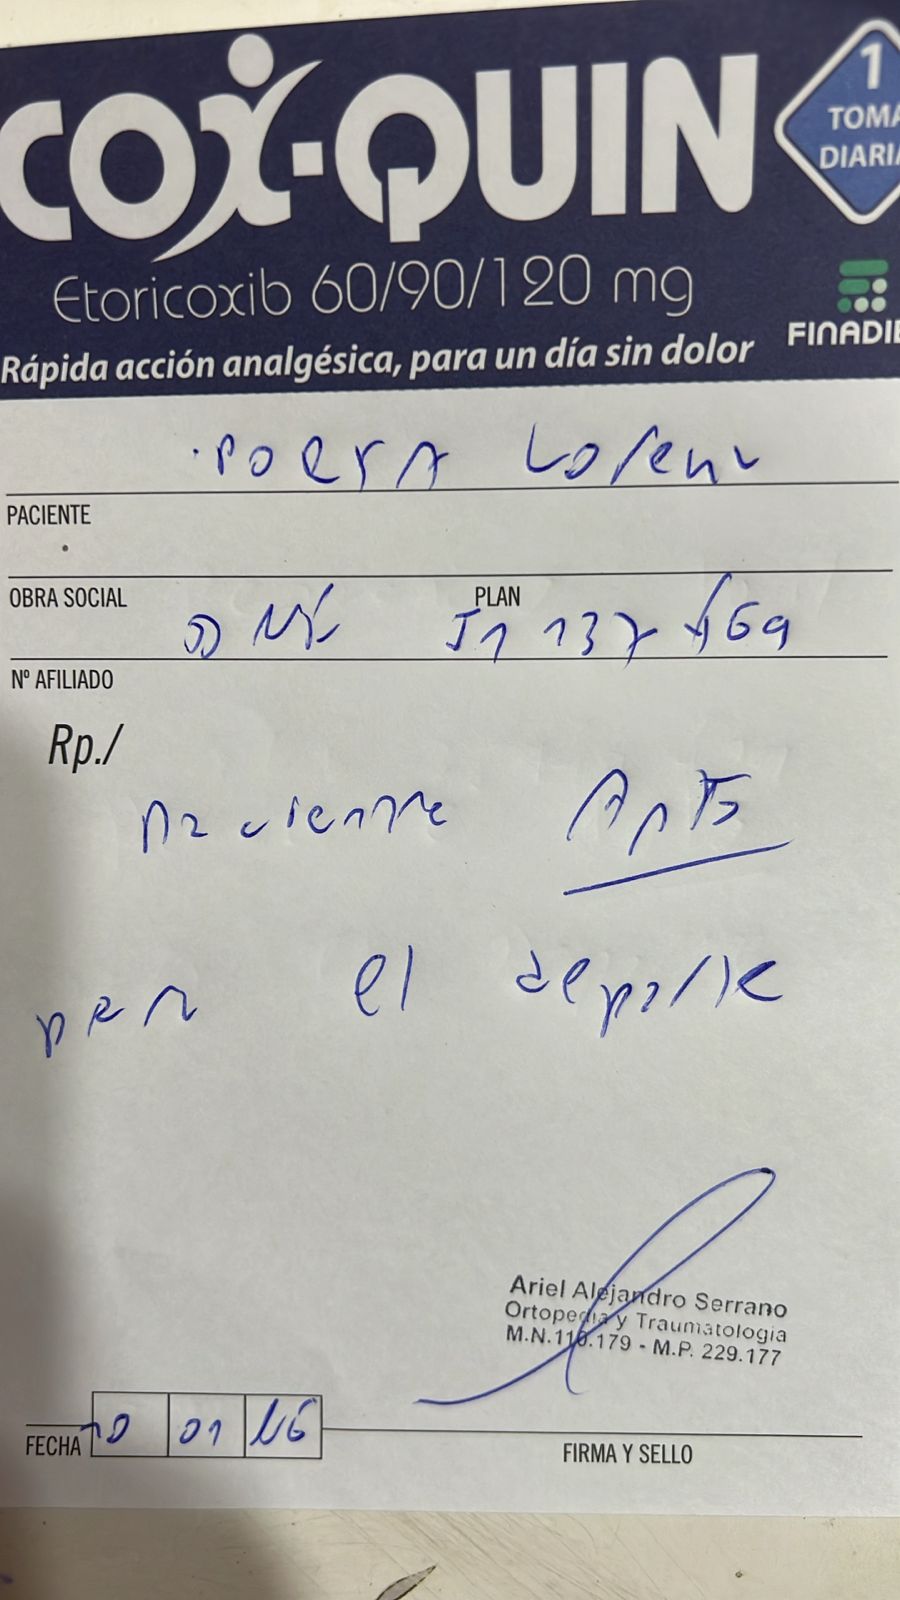 COX-QUIN
1
TOMA
DIARIA
Etoricoxib 60/90/120 mg
FINADIE
Rápida acción analgésica, para un día sin dolor
PACIENTE
OBRA SOCIAL PLAN
Nº AFILIADO
Rp./
Paciente Apto
para el deporte
Ariel Alejandro Serrano
Ortopedia y Traumatología
M.N. - M.P. 229.177
FECHA 01
FIRMA Y SELLO